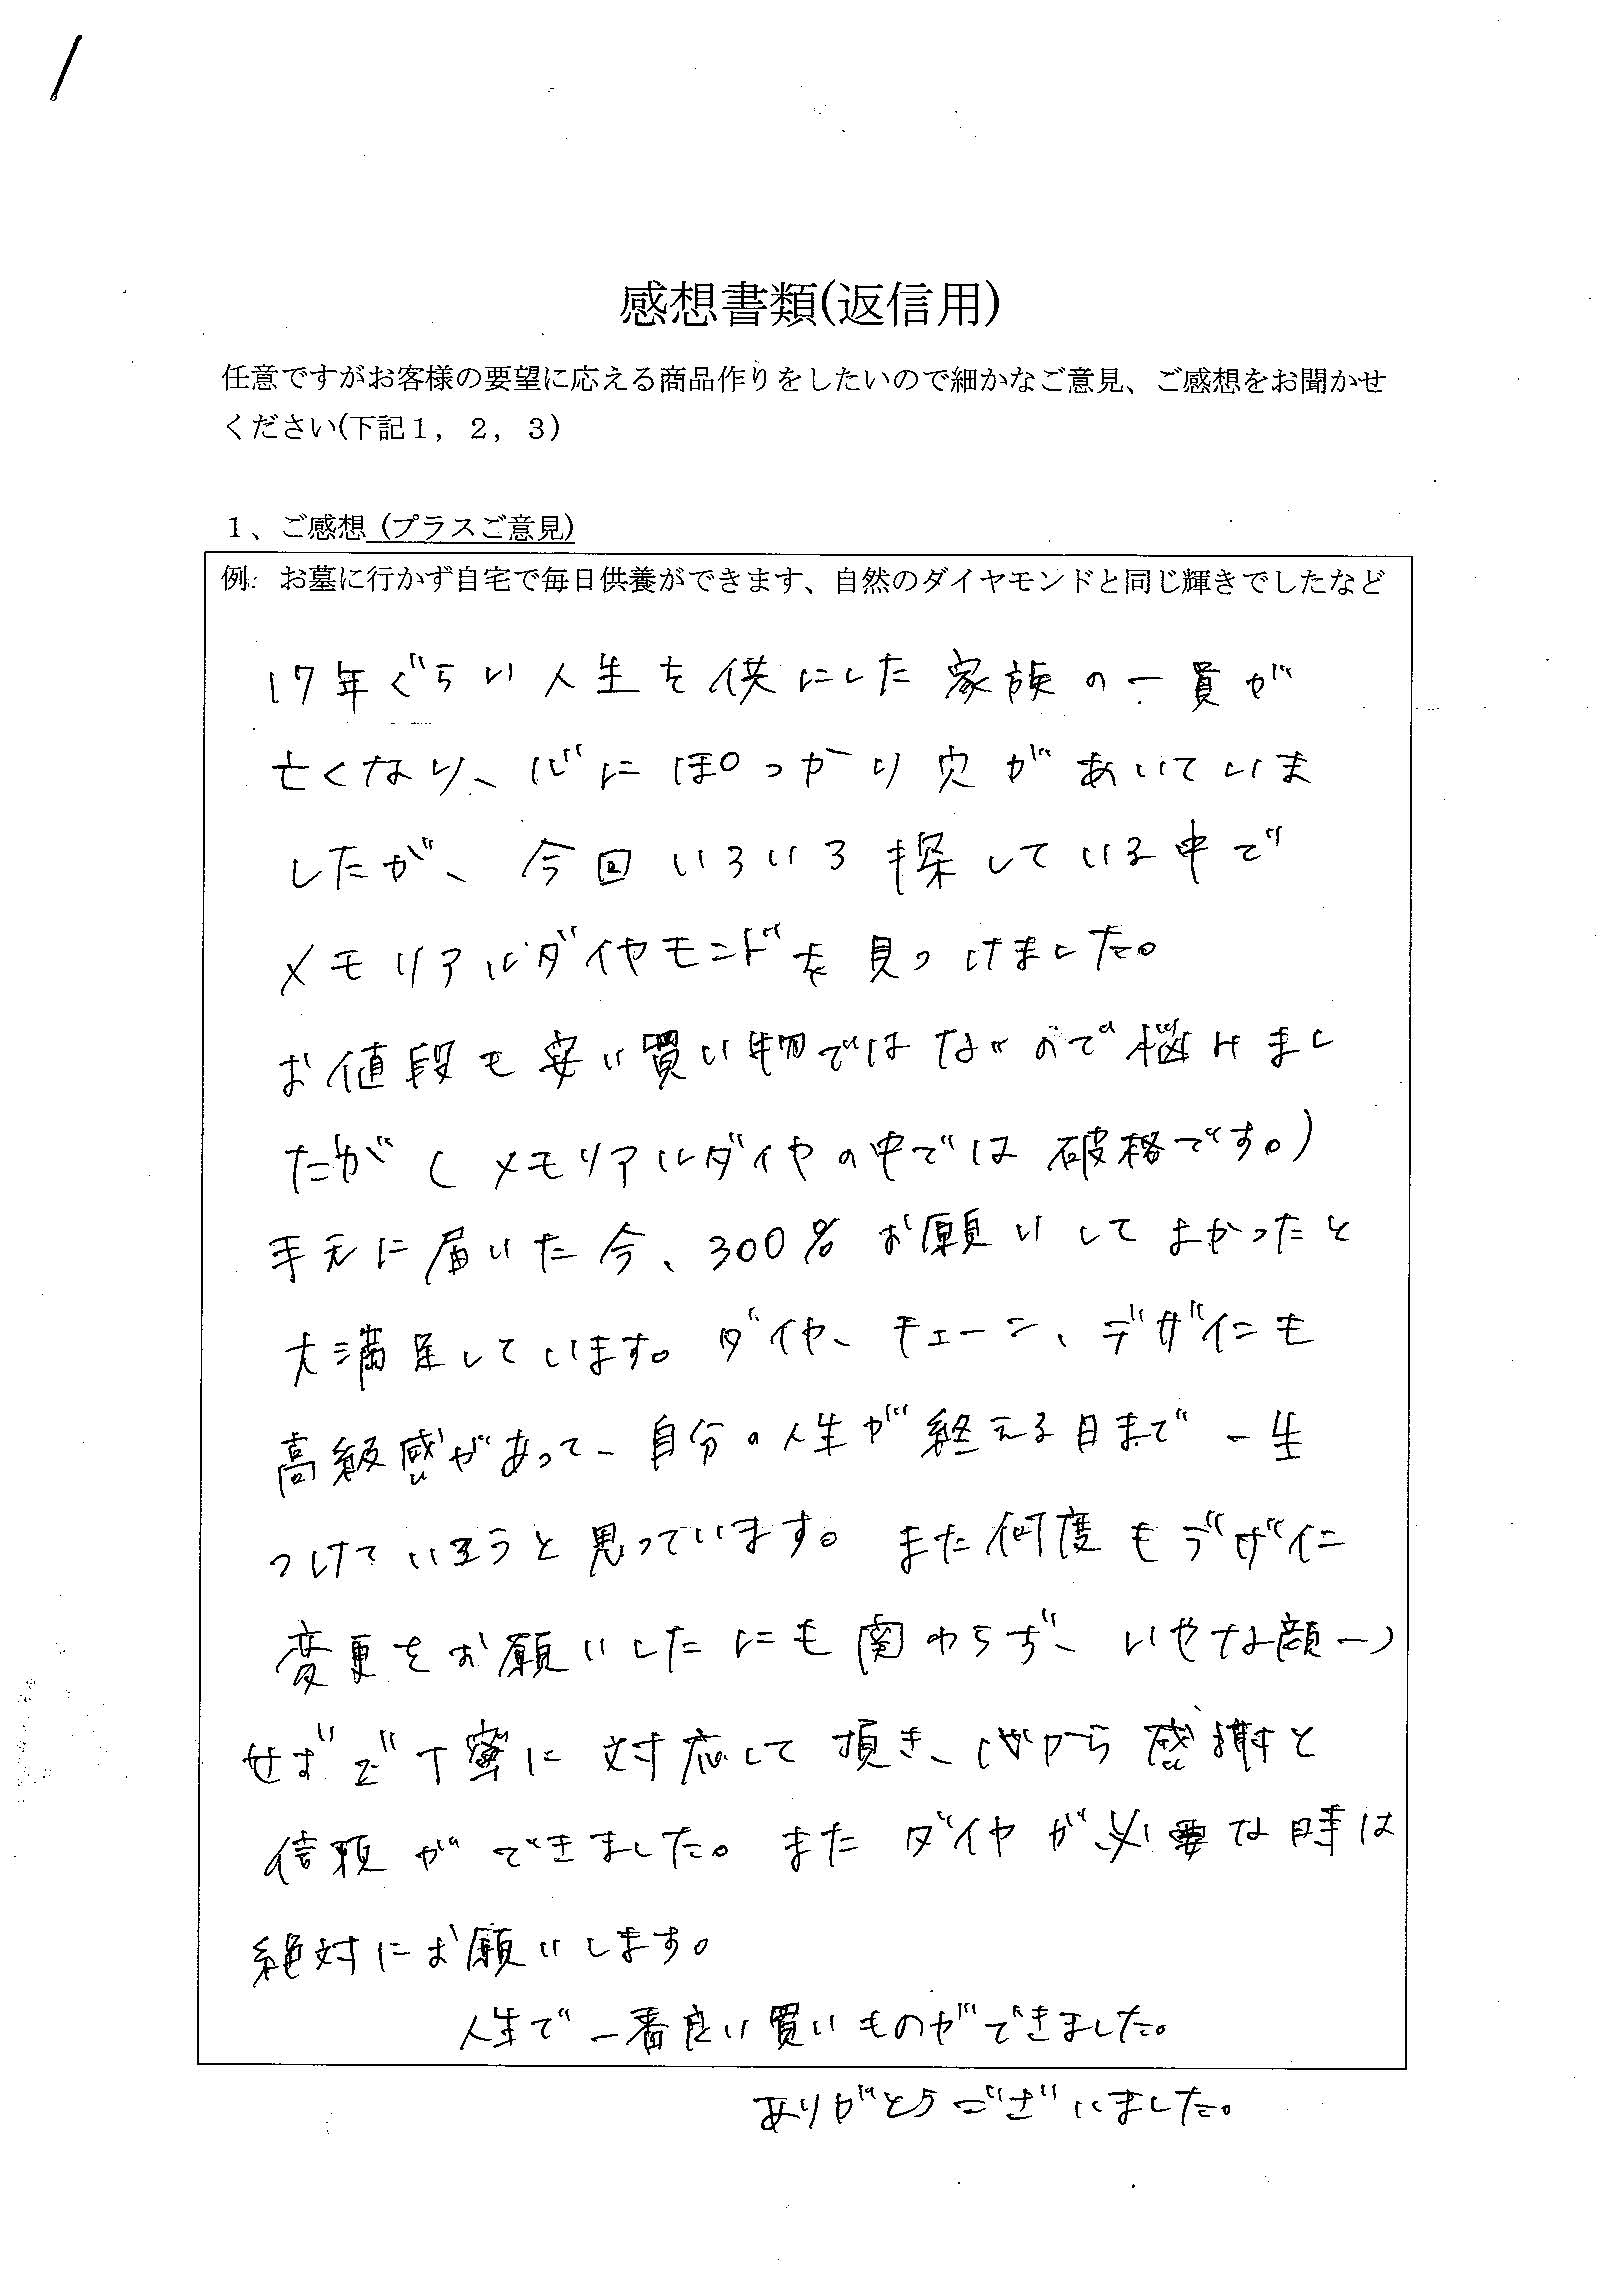 感想書類(返信用)
任意ですがお客様の要望に応える商品作りをしたいので細かなご意見、ご感想をお聞かせ
ください(下記１，２，３)
１、ご感想 (プラスご意見)
例: お墓に行かず自宅で毎日供養ができます、自然のダイヤモンドと同じ輝きでしたなど
17年ぐらい人生を供にした家族の一員が
亡くなり、心にぽっかり穴があいていま
したが、今回いろいろ探している中で
メモリアルダイヤモンドを見つけました。
お値段も安い買い物ではないので悩けまし
たが(メモリアルダイヤの中では破格です。)
手元に届いた今、300%お願いしてよかったと
大満足しています。ダイヤ、チェーン、デザインも
高級感があって、自分の人生が終える日まで一生
つけていようと思っています。また何度もデザイン
変更をお願いしたにも関わらず、いやな顔一つ
せずご丁寧に対応して頂き、心から感謝と
信頼ができました。またダイヤが必要な時は
絶対にお願いします。
人生で一番良い買いものができました。
ありがとうございました。